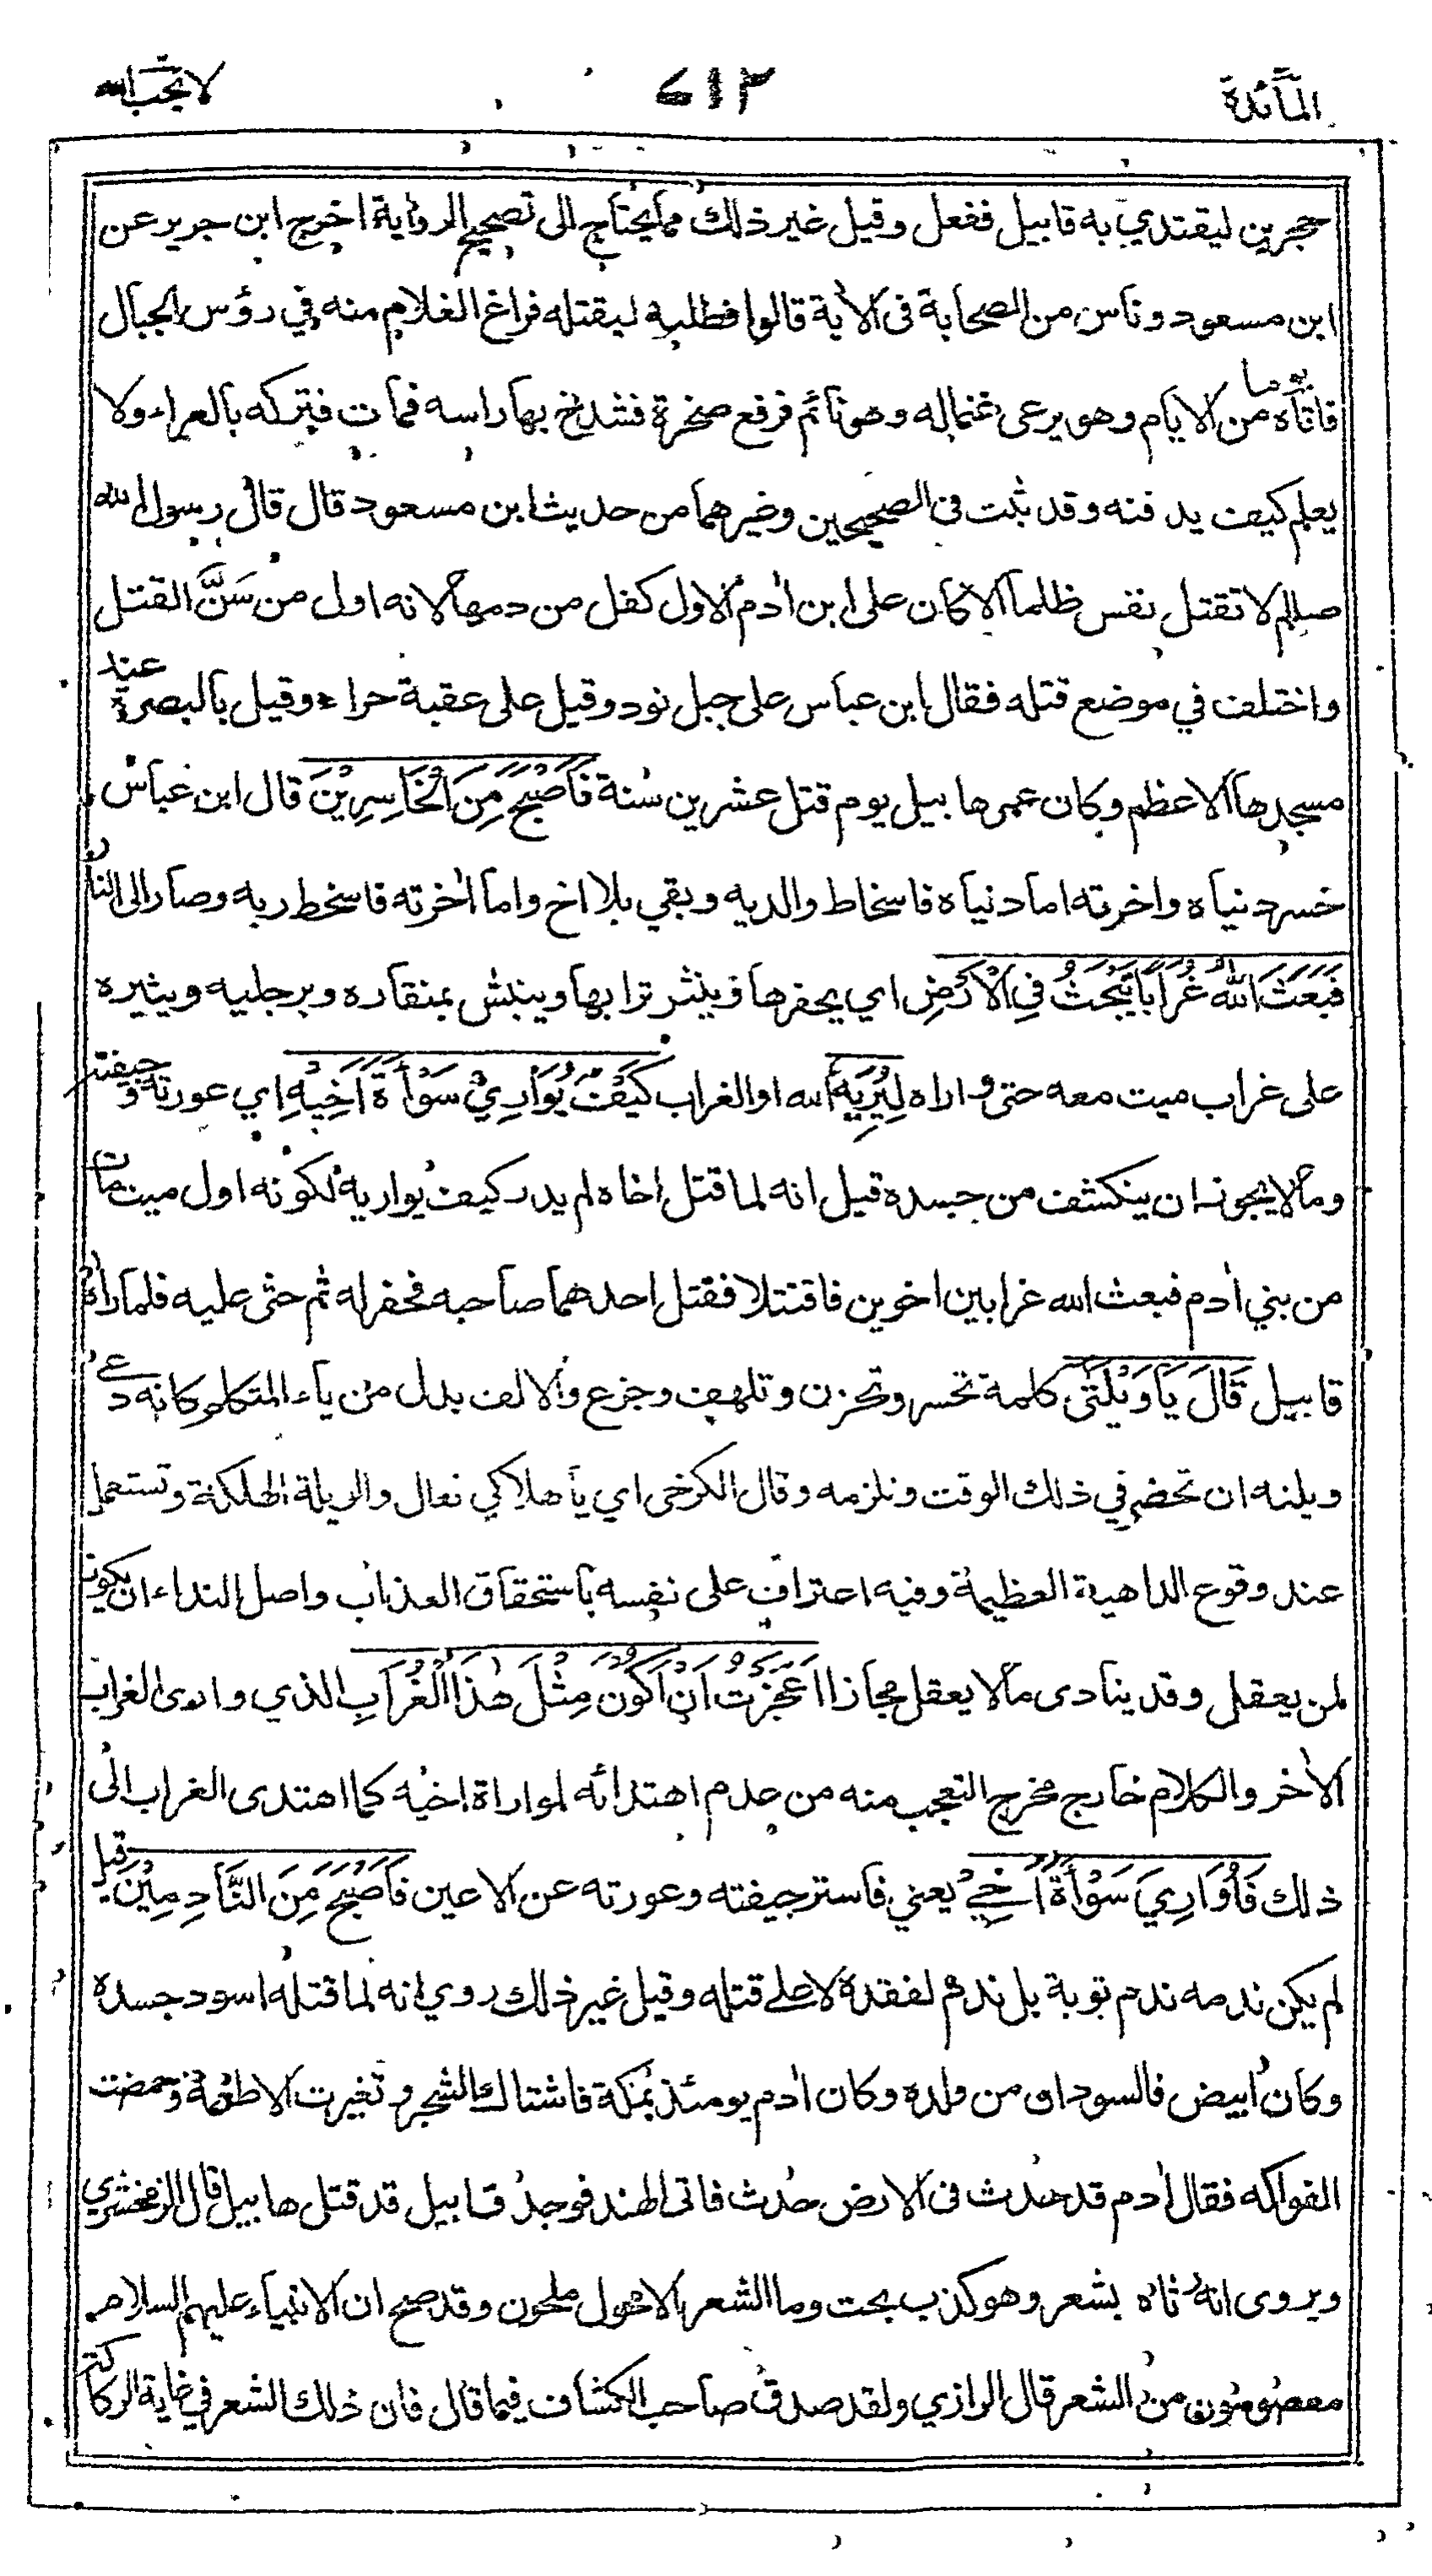 المآئدة
٦١٣
لا يحب الله
حجرين ليقتدي به قابيل ففعل وقيل غير ذلك مما يحتاج الى تصحيح الرواية اخرج ابن جرير عن
ابن مسعود وناس من الصحابة فى الأية قالوا فطلبه ليقتله فراغ الغلام منه في رؤس الجبال
فاتاه يوما من الايام وهو يرعى غنما له وهو نائم فرفع صخرة فشدخ بها راسه فمات فتركه بالعراء ولا
يعلم كيف يدفنه وقد ثبت في الصحيحين وغيرهما من حديث ابن مسعود قال قال رسول الله
صللم لا تقتل نفس ظلما الا كان على ابن أدم الاول كفل من دمها لانه اول من سَنَّ القتل
واختلف في موضع قتله فقال ابن عباس على جبل نود وقيل على عقبة حراء وقيل بالبصرة عند
مسجدها الاعظم وكان عمر هابيل يوم قتل عشرين سنة فَاَصْبَحَ مِنَ الْخَاسِرِيْنَ قال ابن عباس
خسر دنياه واخرته اما دنياه فاسخاط والديه وبقي بلا اخ واما أخرته فاسخط ربه وصار الى النار
فَبَعَثَ اللّٰهُ غُرَابًا يَّبْحَثُ فِى الْاَرْضِ اي يحفرها وينثر ترابها وينبش بمنقاره وبرجليه ويثيره
على غراب ميت معه حتى واراه لِيُرِيَهُ الله او الغراب كَيْفَ يُوَارِيْ سَوْأَةَ اَخِيْهِ اي عورته وجيفته
وما لا يجوز ان ينكشف من جسده قيل انه لما قتل اخاه لم يدر كيف يواريه لكونه اول ميت مات
من بني أدم فبعث الله غرابين اخوين فاقتتلا فقتل احدهما صاحبه فحفر له ثم حثى عليه فلما رأه
قابيل قَالَ يَا وَيْلَتٰى كلمة تحسر وتحزن وتلهف وجزع والالف بدل من ياء المتكلم كانه دعى
ويلته ان تحضر في ذلك الوقت وتلزمه وقال الكرخى اي يا هلاكي تعال والويلة الهلكة وتستعمل
عند وقوع الداهية العظيمة وفيه اعتراف على نفسه باستحقاق العذاب واصل النداء ان يكون
لمن يعقل وقد ينادى ما لا يعقل مجازا اَعَجَزْتُ اَنْ اَكُوْنَ مِثْلَ هٰذَا الْغُرَابِ الذي وارى الغراب
الأخر والكلام خارج مخرج التعجب منه من عدم اهتدائه لمواراة اخيه كما اهتدى الغراب الى
ذلك فَاُوَارِيَ سَوْأَةَ اَخِيْ يعني فاستر جيفته وعورته عن الاعين فَاَصْبَحَ مِنَ النَّادِمِيْنَ قيل
لم يكن ندمه ندم توبة بل ندم لفقده لا على قتله وقيل غير ذلك روي انه لما قتله اسود جسده
وكان ابيض فالسودان من ولده وكان أدم يومئذ بمكة فاشتاك الشجر وتغيرت الاطعمة وحمضت
الفواكه فقال أدم قد حدث فى الارض حدث فاتى الهند فوجد قابيل قد قتل هابيل قال الزمخشري
ويروى انه رثاه بشعر وهو كذب بحت وما الشعر الا منحول ملحون وقد صح ان الانبياء عليهم السلام
معصومون من الشعر قال الرازي ولقد صدق صاحب الكشاف فيما قال فان ذلك الشعر في غاية الركاكة